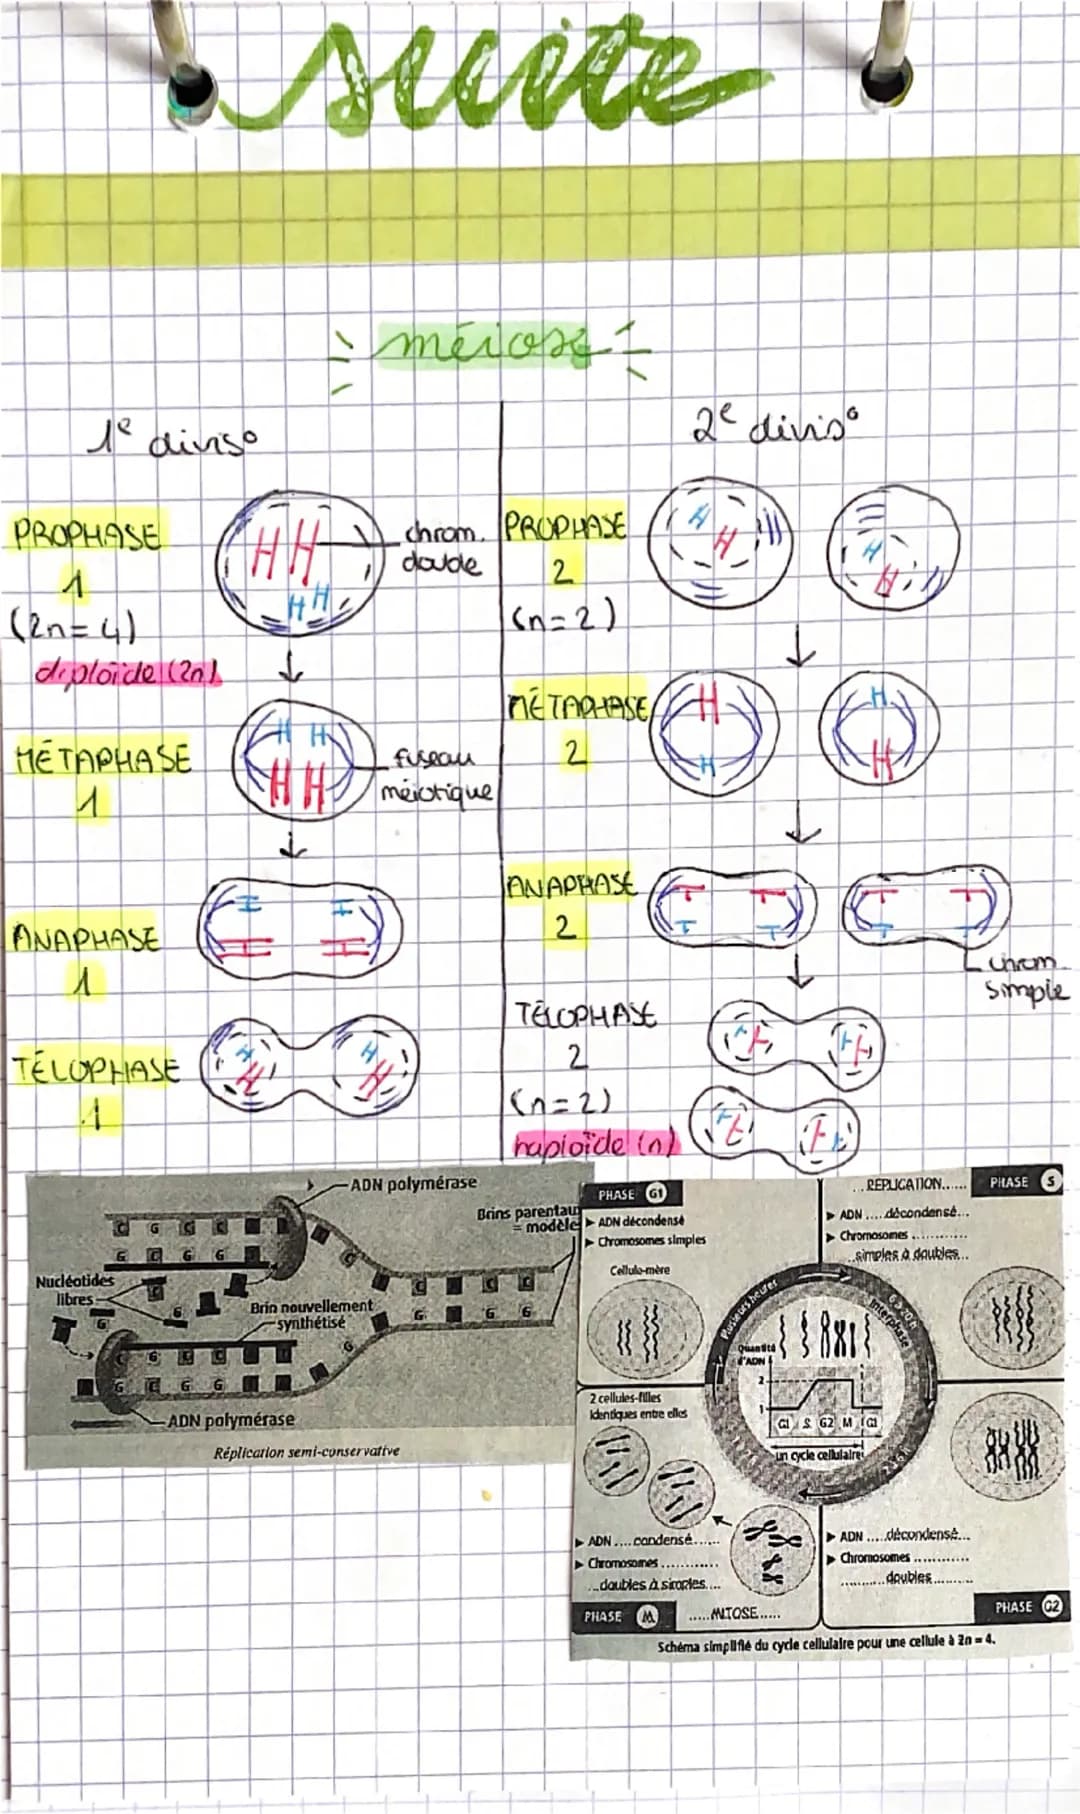 suite
méiose
1e divis°
PROPHASE
1
(2n=4)
diploïde (2n)
chrom.
double
MÉTAPHASE
1
fuseau
méiotique
ANAPHASE
1
TÉLOPHASE
1
2e divis°
PROPHASE
2
(n=2)
MÉTAPHASE
2
ANAPHASE
2
chrom
simple
TÉLOPHASE
2
(n=2)
haploïde (n)
ADN polymérase
Brins parentau
= modèle
Nucléotides
libres
Brin nouvellement
synthétisé
ADN polymérase
Réplication semi-conservative
PHASE G1
ADN décondensé
Chromosomes simples
Cellule-mère
...RÉPLICATION...... PHASE S
ADN ....décondensé...
Chromosomes ............
..simples à doubles...
Plusieurs heures
Interphase
Quantité
d'ADN
2
1
G1 S G2 M G1
un cycle cellulaire
2 cellules-filles
identiques entre elles
ADN ....condensé......
Chromosomes ............
...doubles à simples....
PHASE M ......MITOSE.....
ADN .....décondensé...
Chromosomes ............
............doubles..........
PHASE G2
Schéma simplifié du cycle cellulaire pour une cellule à 2n = 4.